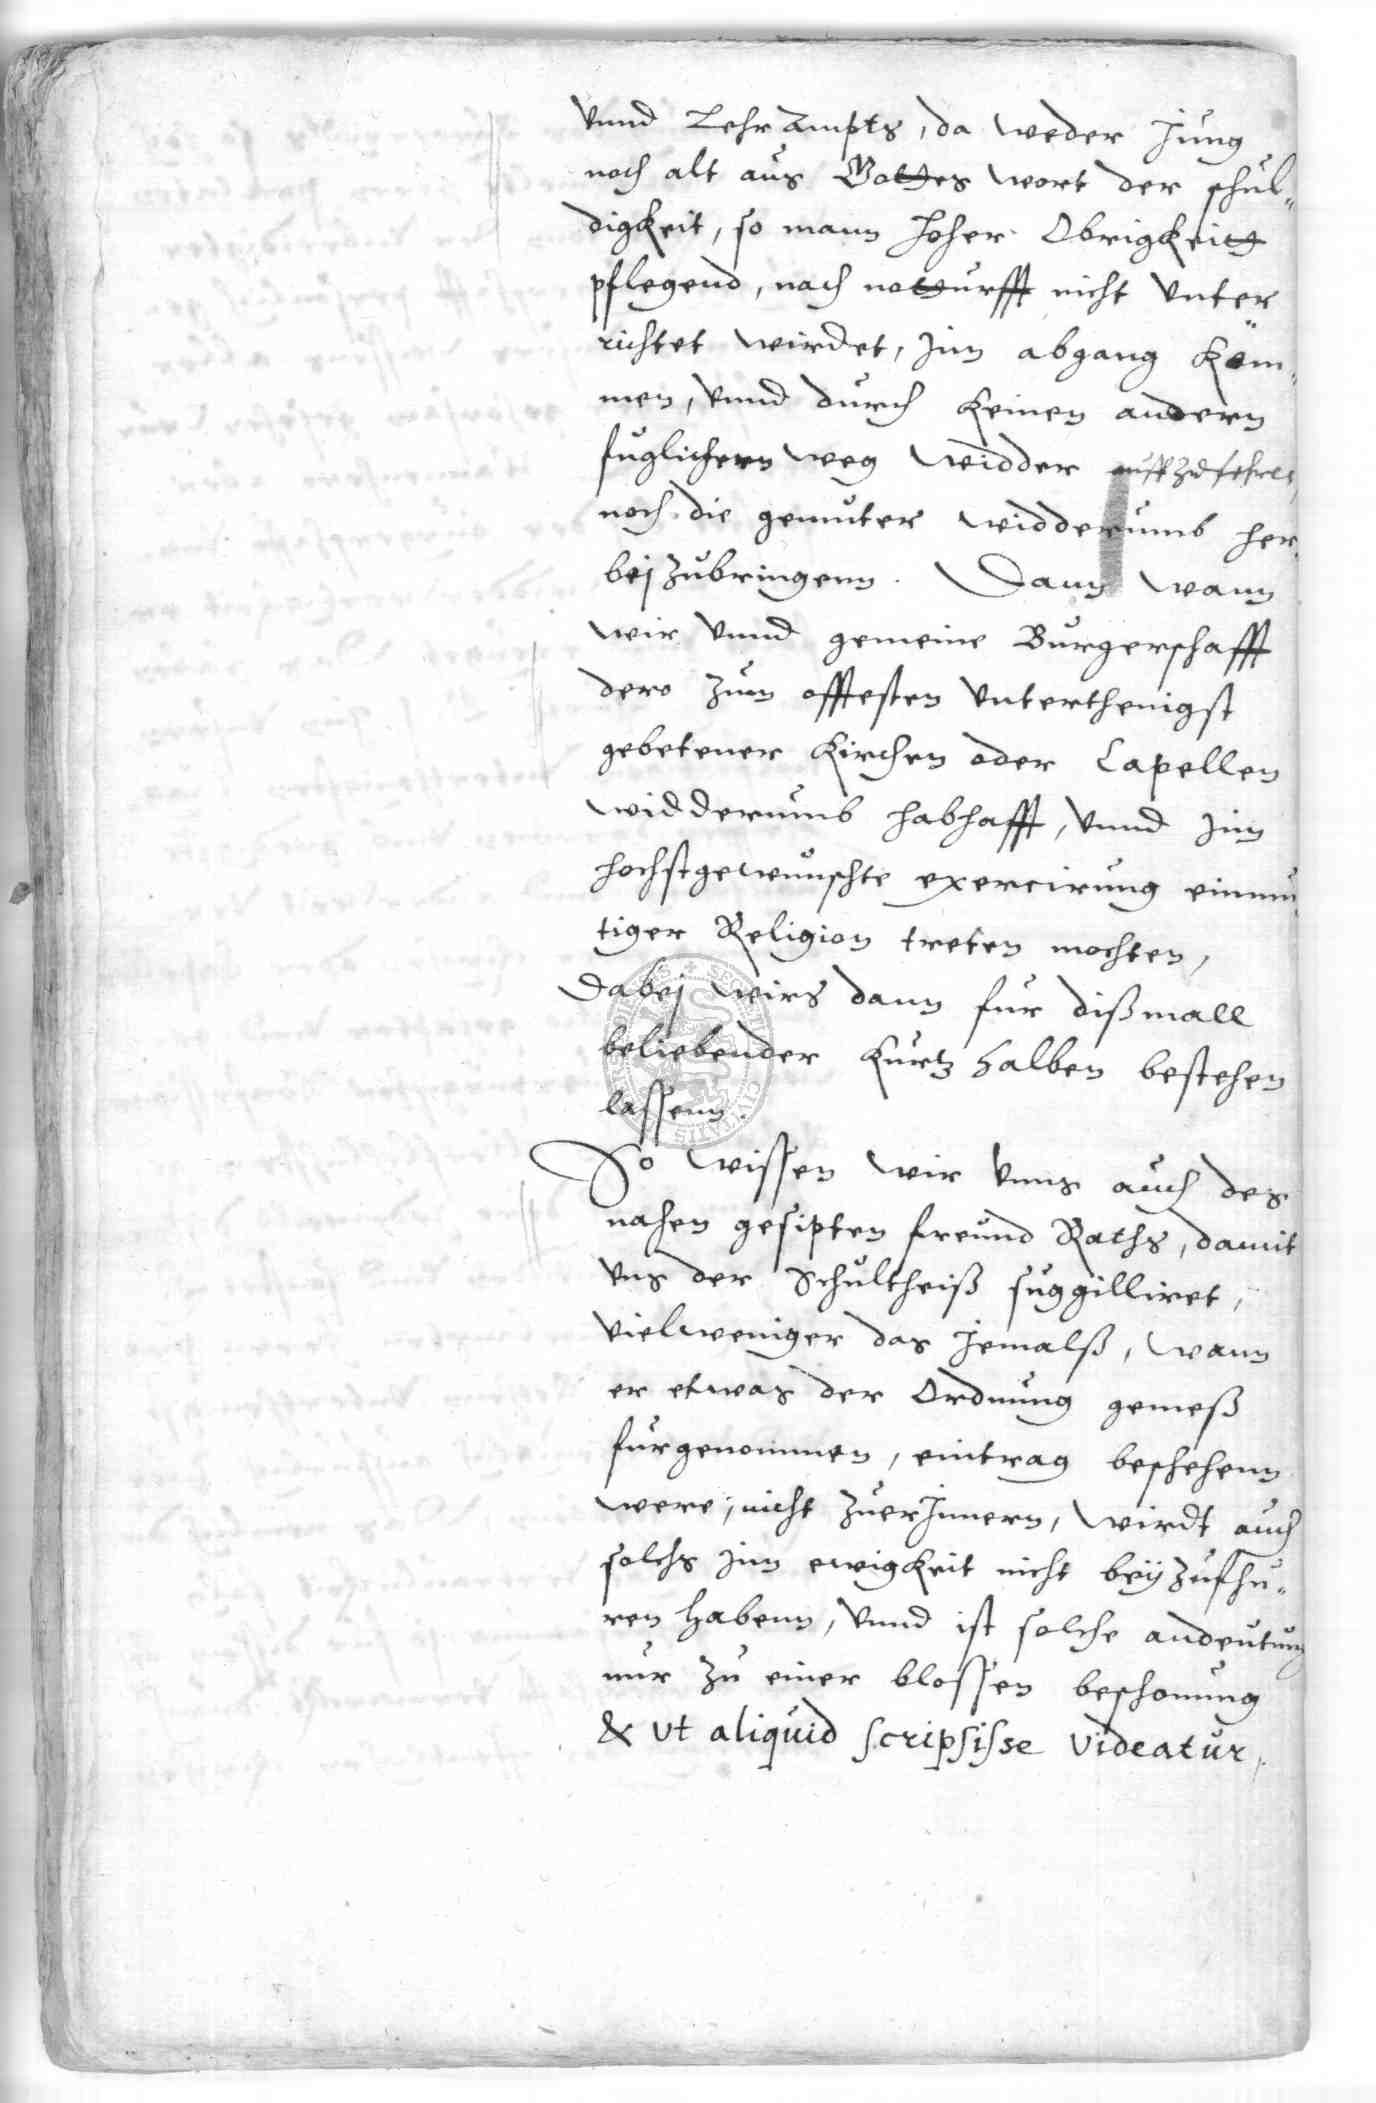 vnnd LehrAmpts, da weder Jung
noch alt aus Gottes wort der schul„
digkeit, so mann hoher Obrigkeitt
pflegend, nach notturfft nicht vnter
richtet wirdet, Jnn abgang kom„
men, vnnd durch keinen andern
fuglichern weg widder
noch die gemuter widderumb her„
beij zubringenn. Dann wann
wir vnnd gemeine Burgerschafft
dero zum offtesten vnterthenigst
gebetener Kirchen oder Capellen
widderumb habhafft, vnnd Jnn
hochstgewunschte exercirung einmu„
tiger Religion treten mochten,
Dabeij wirs dann fur dißmall
beliebender kurtz halben bestehen
lassenn.
So wissen wir vnns auch des
nahen gesipten freund Raths, damit
vns der Schultheiß suggilliret,
vielweniger das Jemalß, wann
er etwas der Ordnung gemeß
furgenommen, eintrag beschehenn
were, nicht zuerJnnern, wirdt auch
solchs Jnn ewigkeit nicht beyzufhu„
ren habenn, vnnd ist solche andeutung
nur zu einer blossen beschonung
& vt aliquid scripsisse videatur,